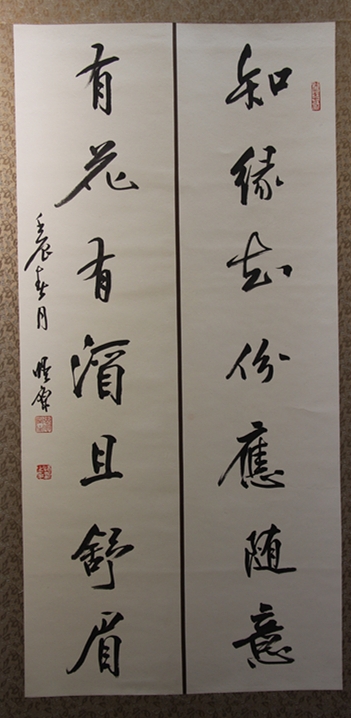 知緣知份應随意
有花有酒且舒眉
壬辰春月